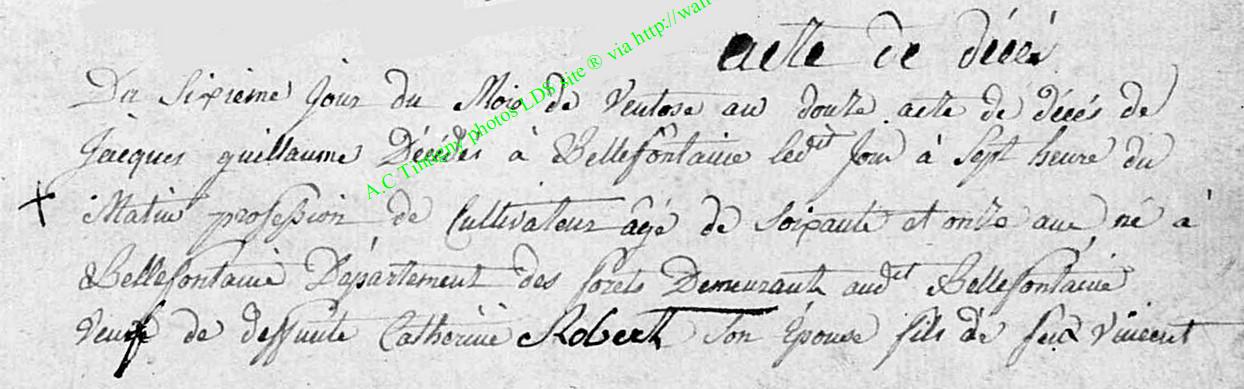 acte de décé
Du Sixieme Jour du Mois de Ventose an douze acte de décés de
Jacques guillaume Décédés à Bellefontaine ledit Jour à Sept heure du
Matin profession de Cultivateur âgé de Soixante et onze ans né à
Bellefontaine Département des forets Demeurant audit Bellefontaine
Veuf de deffunte Catherine Robert Son Épouse fils de feux Vincent
A.C Tintigny photos LDS site ® via http://wan